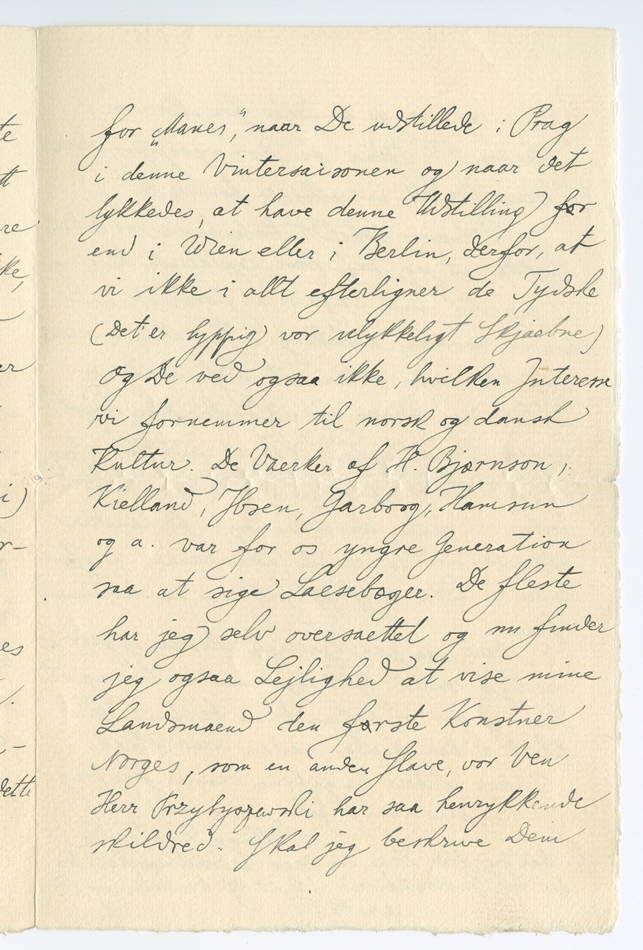 for „Manes", naar De udstillede i Prag
i denne Vintersaisonen og naar det
lykkedes, at have denne Udstilling før
end i Wien eller i Berlin, derfor, at
vi ikke i allt efterligner de Tydske
(det er hyppig vor ulykkeligt Skjaebne)
Og De ved ogsaa ikke, hvilken Interesse
vi fornemmer til norsk og dansk
Kultur. De Vaerker af H. Bjørnson,
Kielland, Ibsen, Garborg, Hamsun
og a. var for os yngre Generation
saa at sige Laesebøger. De fleste
har jeg selv oversaettet og nu finder
jeg ogsaa Lejlighed at vise mine
Landsmaend den første Konstner
Norges, som en anden Slave, vor Ven
Herr Przybyszewski har saa henrykkende
skildred. Skal jeg beskrive Dem